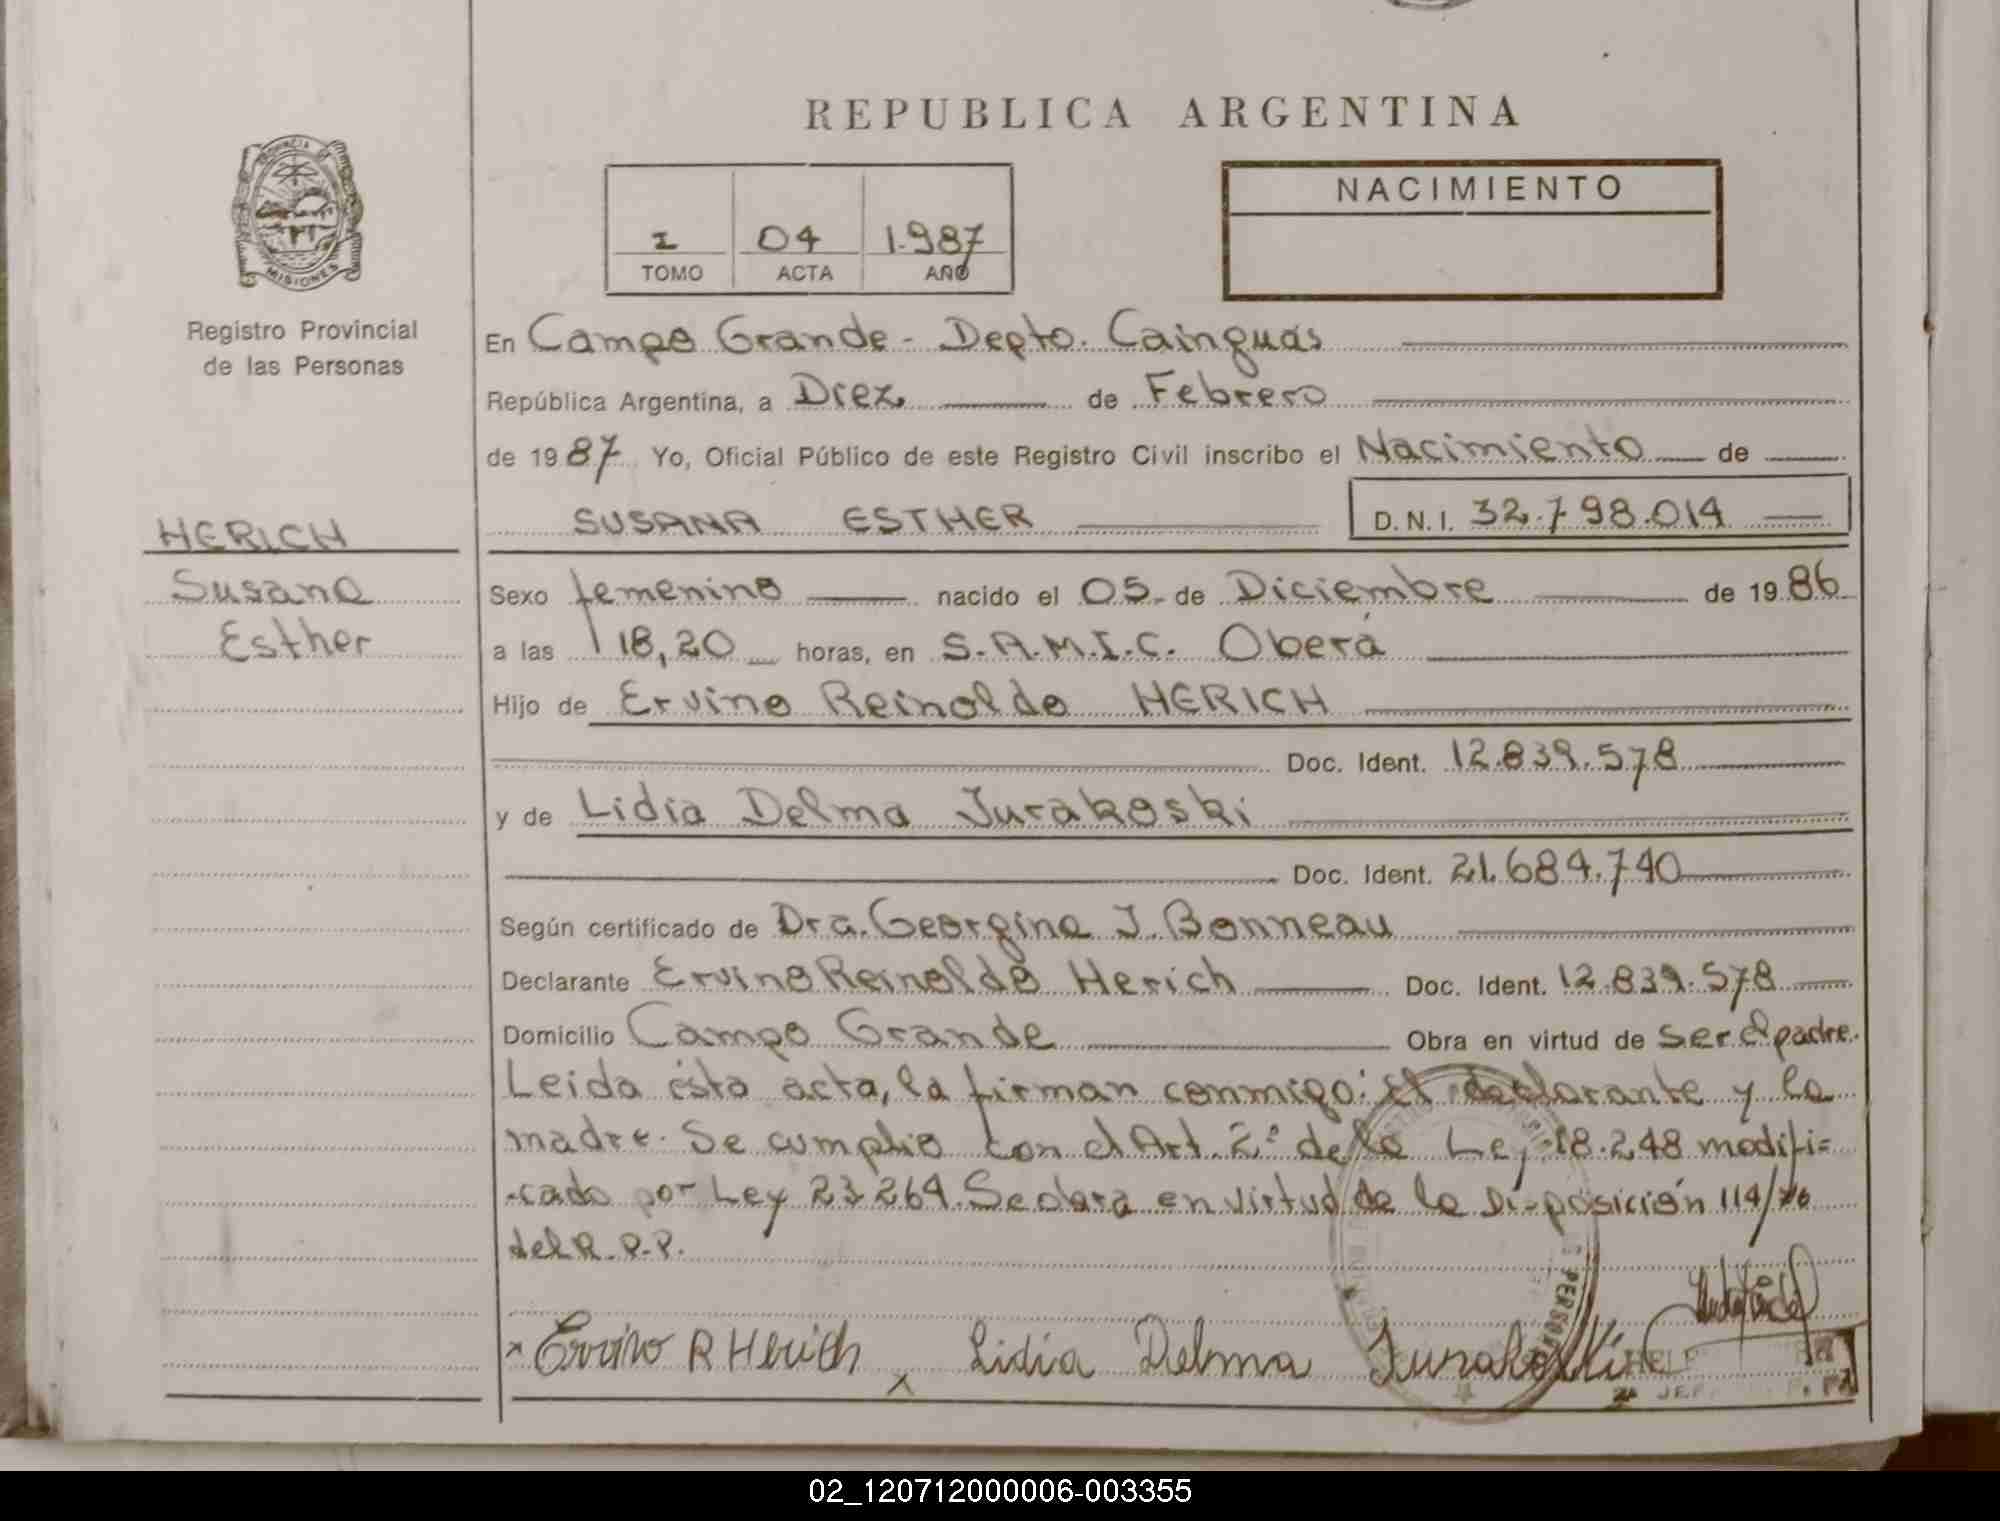 REPUBLICA ARGENTINA
PROVINCIA DE
MISIONES
Registro Provincial
de las Personas
I 04 1.987
TOMO ACTA AÑO
NACIMIENTO
En Campo Grande - Depto. Cainguás
República Argentina, a Diez de Febrero
de 1987 Yo, Oficial Público de este Registro Civil inscribo el Nacimiento de
SUSANA ESTHER D.N.I. 32.798.014
HERICH
Susana
Esther
Sexo femenino nacido el 05 de Diciembre de 1986
a las 18,20 horas, en S.A.M.I.C. Oberá
Hijo de Ervino Reinoldo HERICH
Doc. Ident. 12.839.578
y de Lidia Delma Jurakoski
Doc. Ident. 21.684.740
Según certificado de Dra. Georgina J. Bonneau
Declarante Ervino Reinoldo Herich Doc. Ident. 12.839.578
Domicilio Campo Grande Obra en virtud de ser el padre.
Leida ésta acta, la firman conmigo: El declarante y la
madre. Se cumplio con el Art. 2º de la Ley 18.248 modifi=
-cado por Ley 23264. Se labra en virtud de la Disposición 114/76
del R.P.P.
x Ervino R Herich x Lidia Delma Jurakoski
PERSONA
JEF
02_120712000006-003355